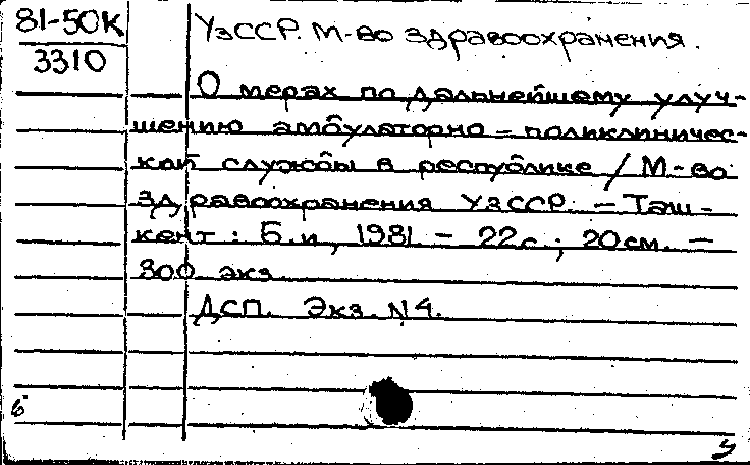 81-50К
3310
УзССР. М-во здравоохранения.
О мерах по дальнейшему улуч-
шению амбулаторно - поликлиничес-
кой службы в республике / М-во
здравоохранения УзССР. - Таш-
кент : Б.и, 1981 - 22с ; 20см. -
300 экз.
ДСП. Экз. N4.
6